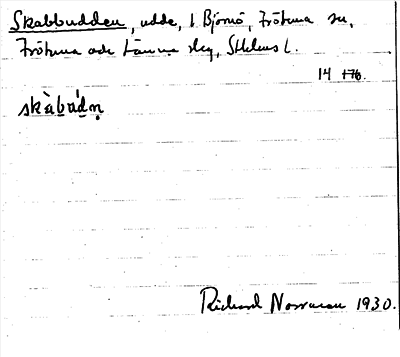 Skabbudden, udde, l. Björnö, Frötuna sn,
Frötuna och Länna slg, Sthlms l.
14 176.
skàbúdn̥
Richard Norrman 1930.